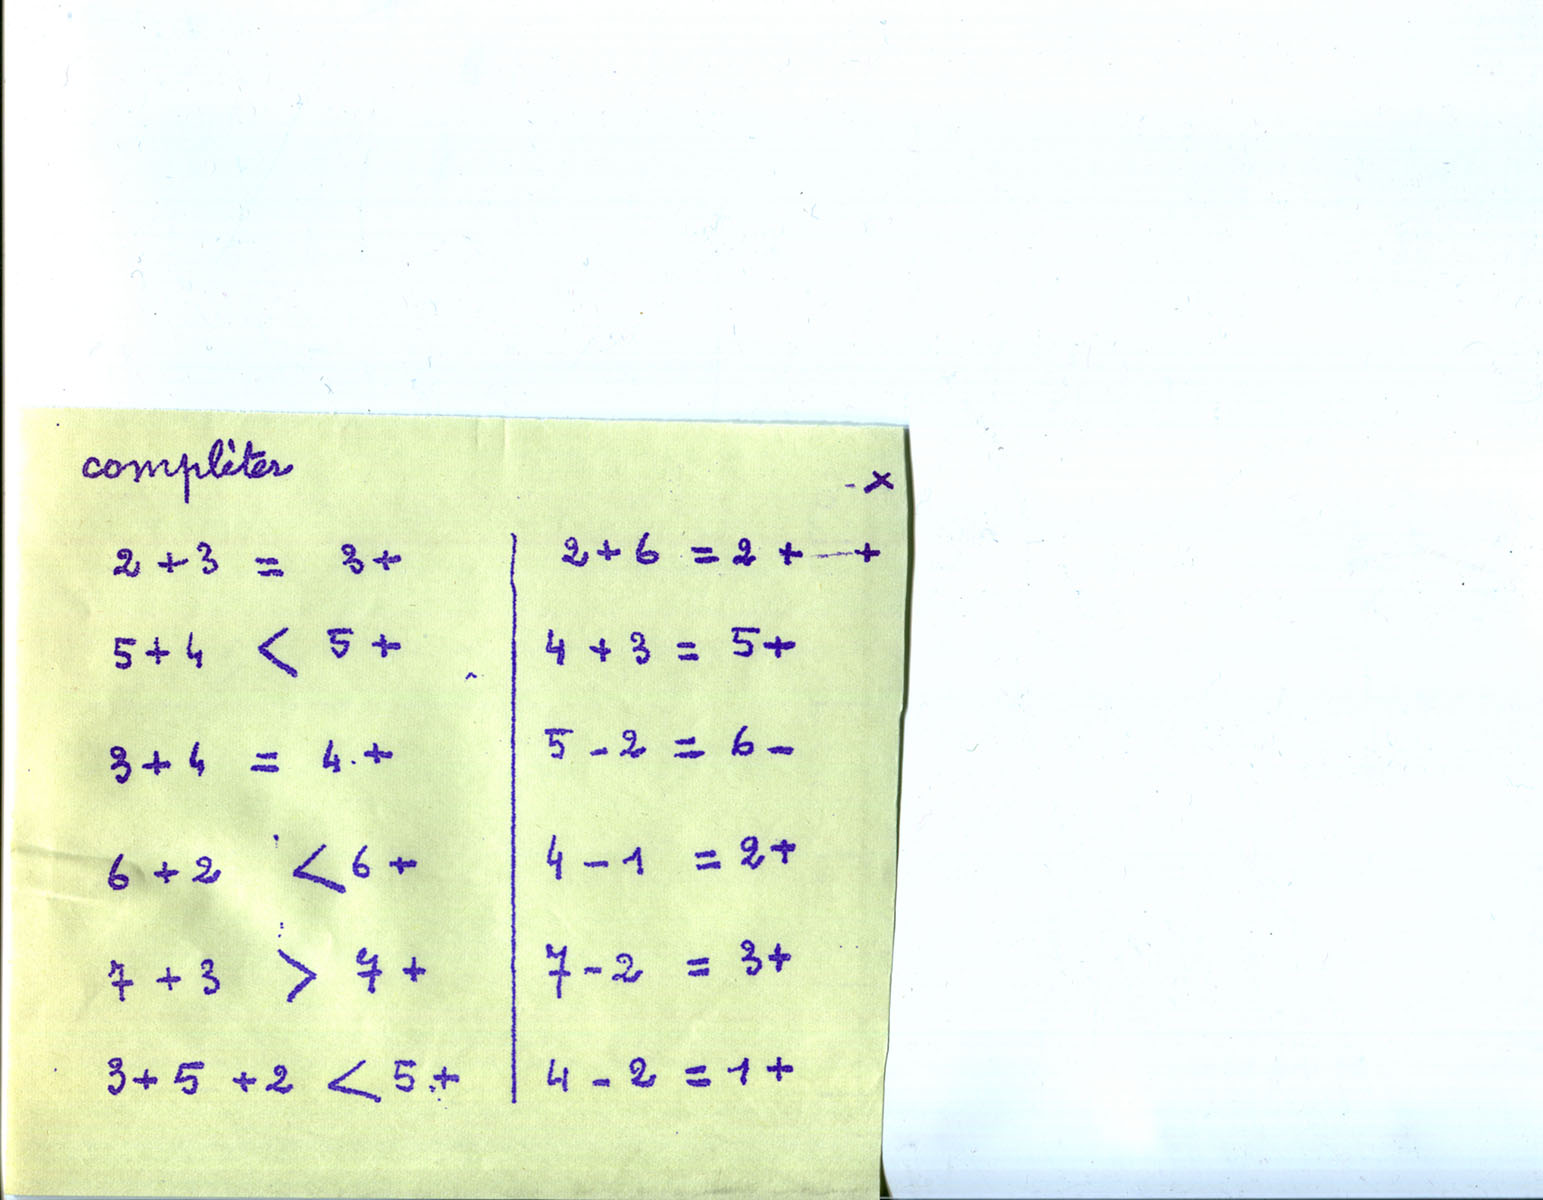 complèter
x
2 + 3 = 3 +
5 + 4 < 5 +
3 + 4 = 4 . +
6 + 2 < 6 +
7 + 3 > 7 +
3 + 5 + 2 < 5 . +
2 + 6 = 2 + — +
4 + 3 = 5 +
5 - 2 = 6 -
4 - 1 = 2 +
7 - 2 = 3 +
4 - 2 = 1 +